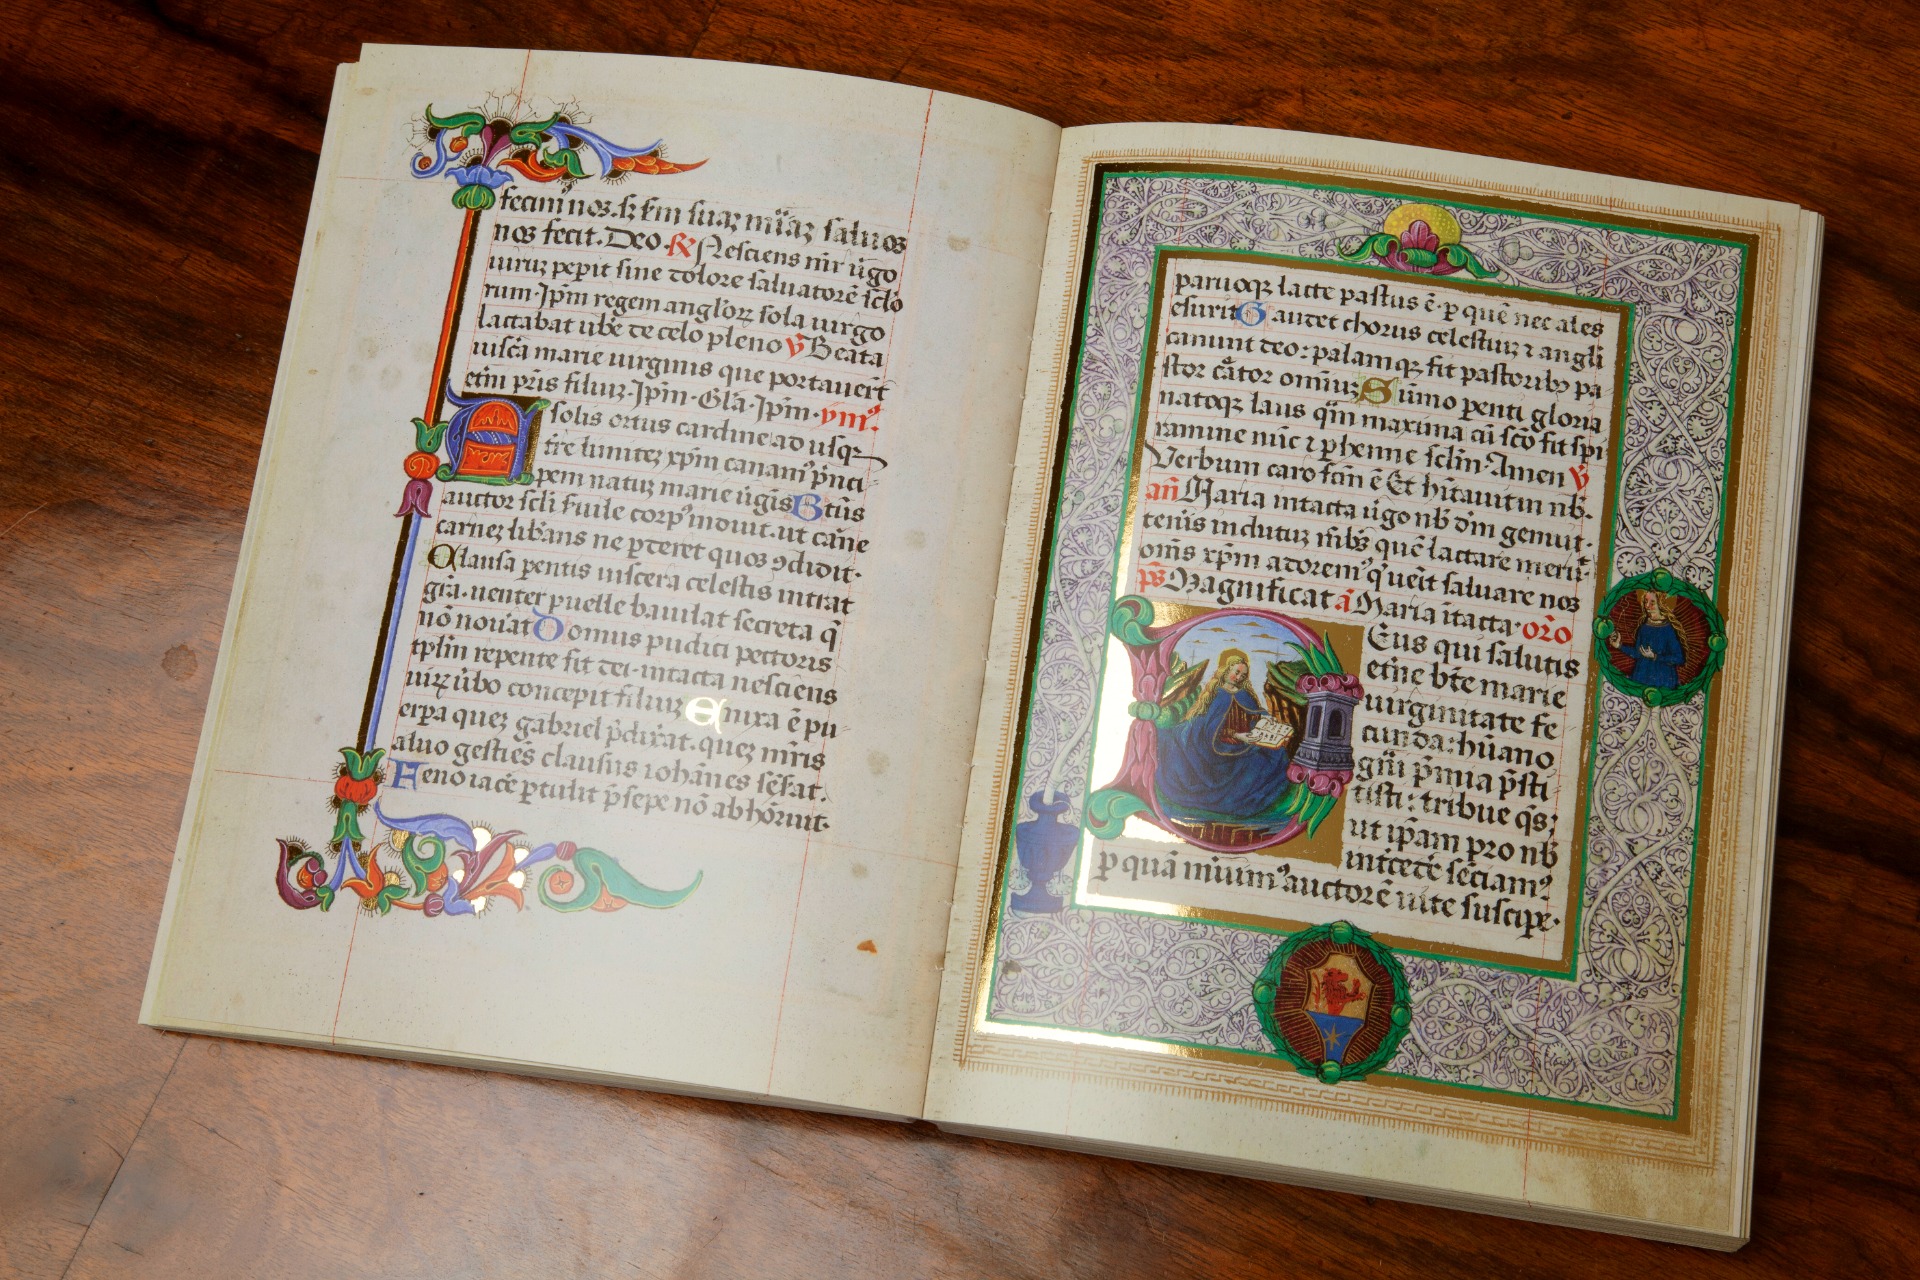 fecim⁹ nos. sꝫ ẜm suaꝫ mīaꝫ saluos
nos fecit. Deo. ℟ Nesciens mr̄ ūgo
uiruꝫ peperit sine dolore saluatorē sclō
rum. Ip̄m regem anglorꝫ sola uirgo
lactabat ubē de celo pleno ℣ Beata
uiscā marie uirginis que portauerūt
etn̄i pr̄is filiuꝫ. Ip̄m. Glā. Ip̄m. ymꝰ.
A solis ortus cardine ad usqꝫ
tr̄e limiteꝫ xp̄m canamꝰ p̄nci
pem natuꝫ marie ūgīs Btūs
auctor scl̄i ẜuile corpꝰ induit. ut carne
carneꝫ lib̄ans ne ꝑderet quos ꝯdidit.
Clausa ꝑentis uiscera celestis intrat
grā. uenter puelle baiulat secreta q̄
nō nouāt Domus pudici pectoris
tp̄lm repente fit dei. intacta nesciens
uirꝫ ūbo concepit filiuꝫ Enixa ē pu
erꝑa queꝫ gabriel p̄dixāt. queꝫ mr̄is
aluo gestiēs clausus iohānes sēs̄at.
Feno iacē ꝑtulit p̄sepe nō abhōruit.
paruoqꝫ lacte pastus ē. ꝑ quē nec ales
esurit Gaudet chorus celestiuꝫ ⁊ angli
canunt deo: palamqꝫ fit pastoribꝰ pa
stor c̄ator omniuꝫ Sūmo ꝑenti gloria
natoqꝫ laus qm̄ maxima cū scō fit spi
ramine nūc ⁊ ꝑhenne sclm̄. Amen ℣
Verbum caro fcm̄ ē Et hītauit in nb̄.
an̄ Maria intacta ūgo nb̄ dm̄ genuit.
tenīs indutuꝫ mb̄s quē lactare merūt.
om̄s xp̄m adoremꝰ q̄ ueīt saluare nos
ps̄ Magnificat ā Maria ītacta. or̄o
Deus qui salutis
etn̄e bt̄e marie
uirginitate fe
cunda: hūano
gn̄i p̄mia p̄sti
tisti: tribue qs̄:
ut ip̄am pro nb̄
int̄cede sēciamꝰ
ꝑ quā mīuimꝰ auctorē uite suscipe.